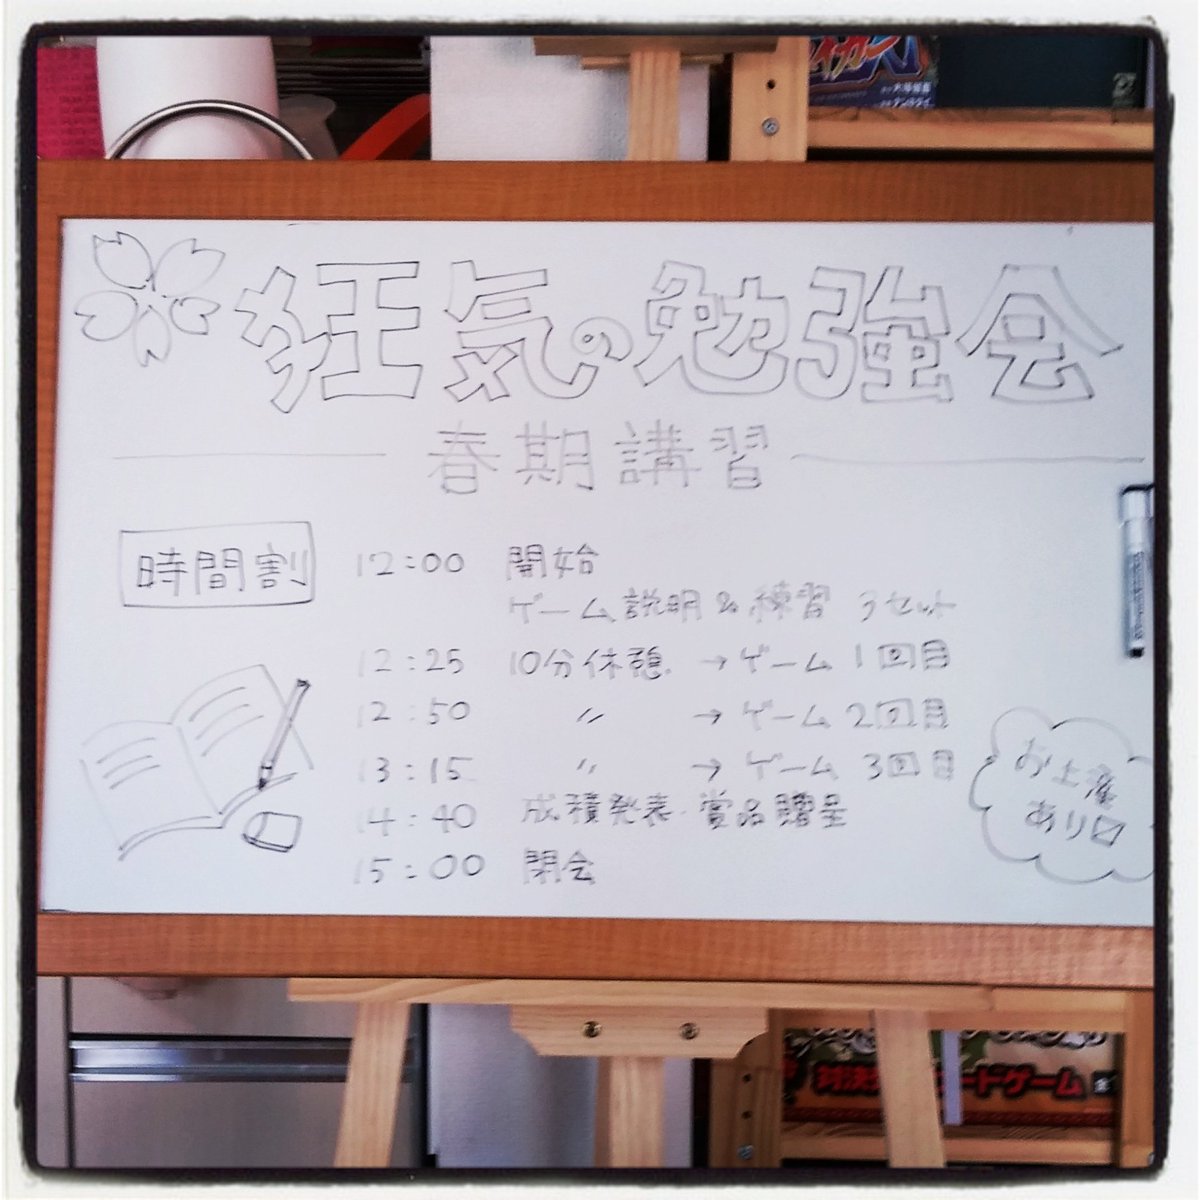 狂気の勉強会
春期講習
時間割
12:00 開始
ゲーム説明&練習 うセット
12:25 10分休憩 → ゲーム 1回目
12:50 〃 → ゲーム 2回目
13:15 〃 → ゲーム 3回目
14:40 成積発表・賞品贈呈
15:00 閉会
お土産
あり口
対決
ードゲーム